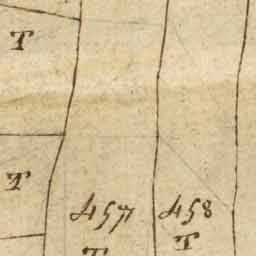 T
T
457 458
T T